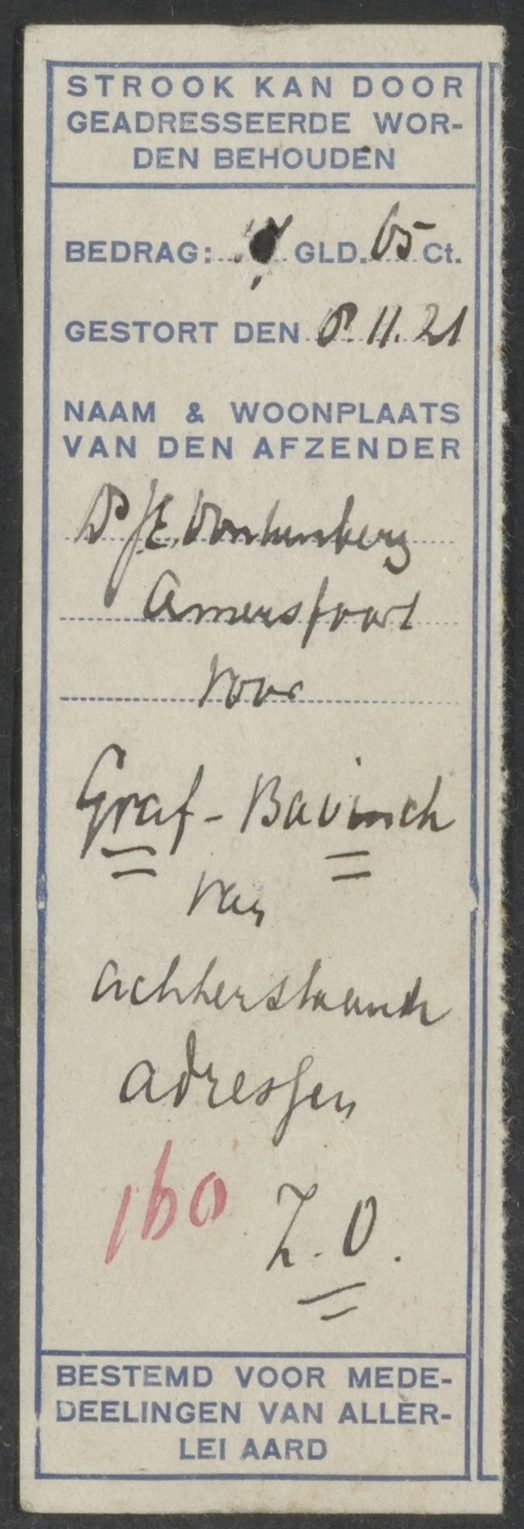 STROOK KAN DOOR
GEADRESSEERDE WOR-
DEN BEHOUDEN
BEDRAG: GLD. 65 Ct.
GESTORT DEN 8.11.21
NAAM & WOONPLAATS
VAN DEN AFZENDER
Ds J.E. Vonkenberg
Amersfoort
voor
Graf-Bavinck
van
achterstaande
adressen
160 Z.O.
BESTEMD VOOR MEDE-
DEELINGEN VAN ALLER-
LEI AARD